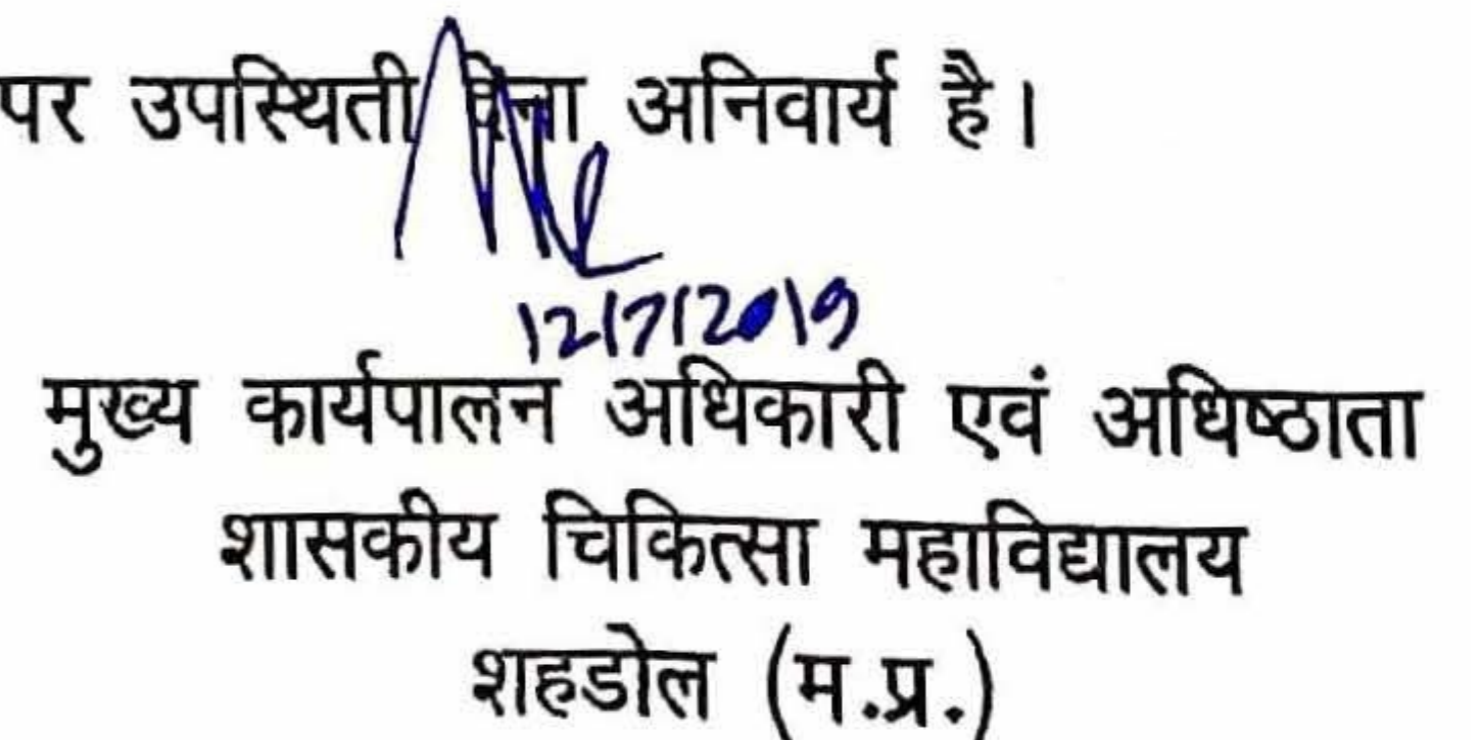 पर उपस्थिती देना अनिवार्य है।
12/7/2019
मुख्य कार्यपालन अधिकारी एवं अधिष्ठाता
शासकीय चिकित्सा महाविद्यालय
शहडोल (म.प्र.)